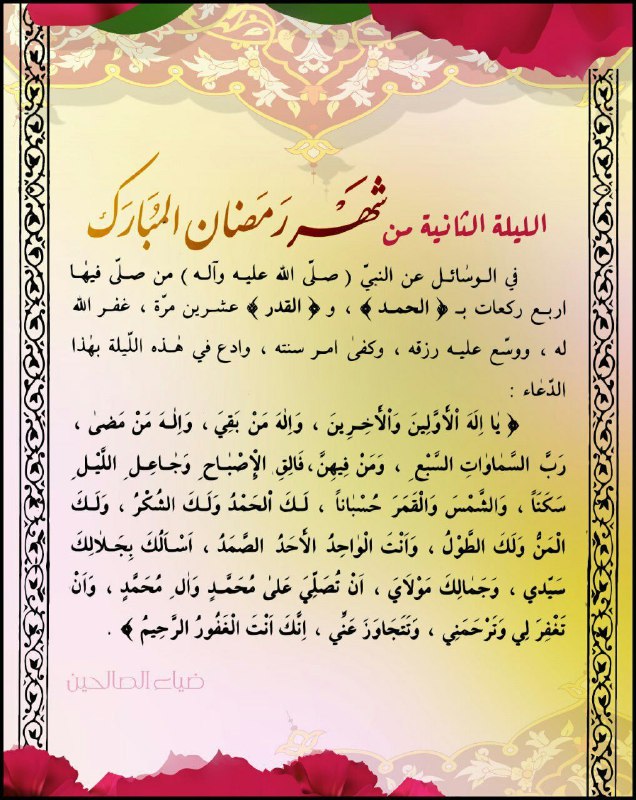 الليلة الثانية من شهر رمضان المبارك
في الوسائل عن النبيّ ( صلّى الله عليه وآله ) من صلّى فيها
اربع ركعات بـ ﴿ الحمد ﴾ ، و ﴿ القدر ﴾ عشرين مرّة ، غفر الله
له ، ووسّع عليه رزقه ، وكفىٰ امر سنته ، وادع في هٰذه اللّيلة بهٰذا
الدّعاء :
﴿ يٰا اِلَهَ الْأَوَّلِينَ وَالْأَخِرِينَ ، وَاِلٰهَ مَنْ بَقِيَ ، وَاِلٰهَ مَنْ مَضىٰ ،
رَبَّ السَّمٰاوٰاتِ السَّبْعِ ، وَمَنْ فِيهِنَّ، فَالِقَ الْإِصْبٰاحِ وَجٰاعِلَ اللَّيْلِ
سَكَنَاً ، وَالشَّمْسَ وَالْقَمَرَ حُسْبٰاناً ، لَكَ الْحَمْدُ وَلَكَ الشُكْرُ ، وَلَكَ
الْمَنُّ وَلَكَ الطَّوْلُ ، وَاَنْتَ الْوٰاحِدُ الْأَحَدُ الصَّمَدُ ، اَسْاَلُكَ بِجَلٰالِكَ
سَيِّدي ، وَجَمٰالِكَ مَوْلَايَ ، اَنْ تُصَلِّيَ عَلىٰ مُحَمَّدٍ وَاٰلِ مُحَمَّدٍ ، وَاَنْ
تَغْفِرَ لِي وَتَرْحَمَنِي ، وَتَتَجٰاوَزَ عَنِّي ، اِنَّكَ اَنْتَ الْغَفُورُ الرَّحِيمُ ﴾ .
ضياء الصالحين